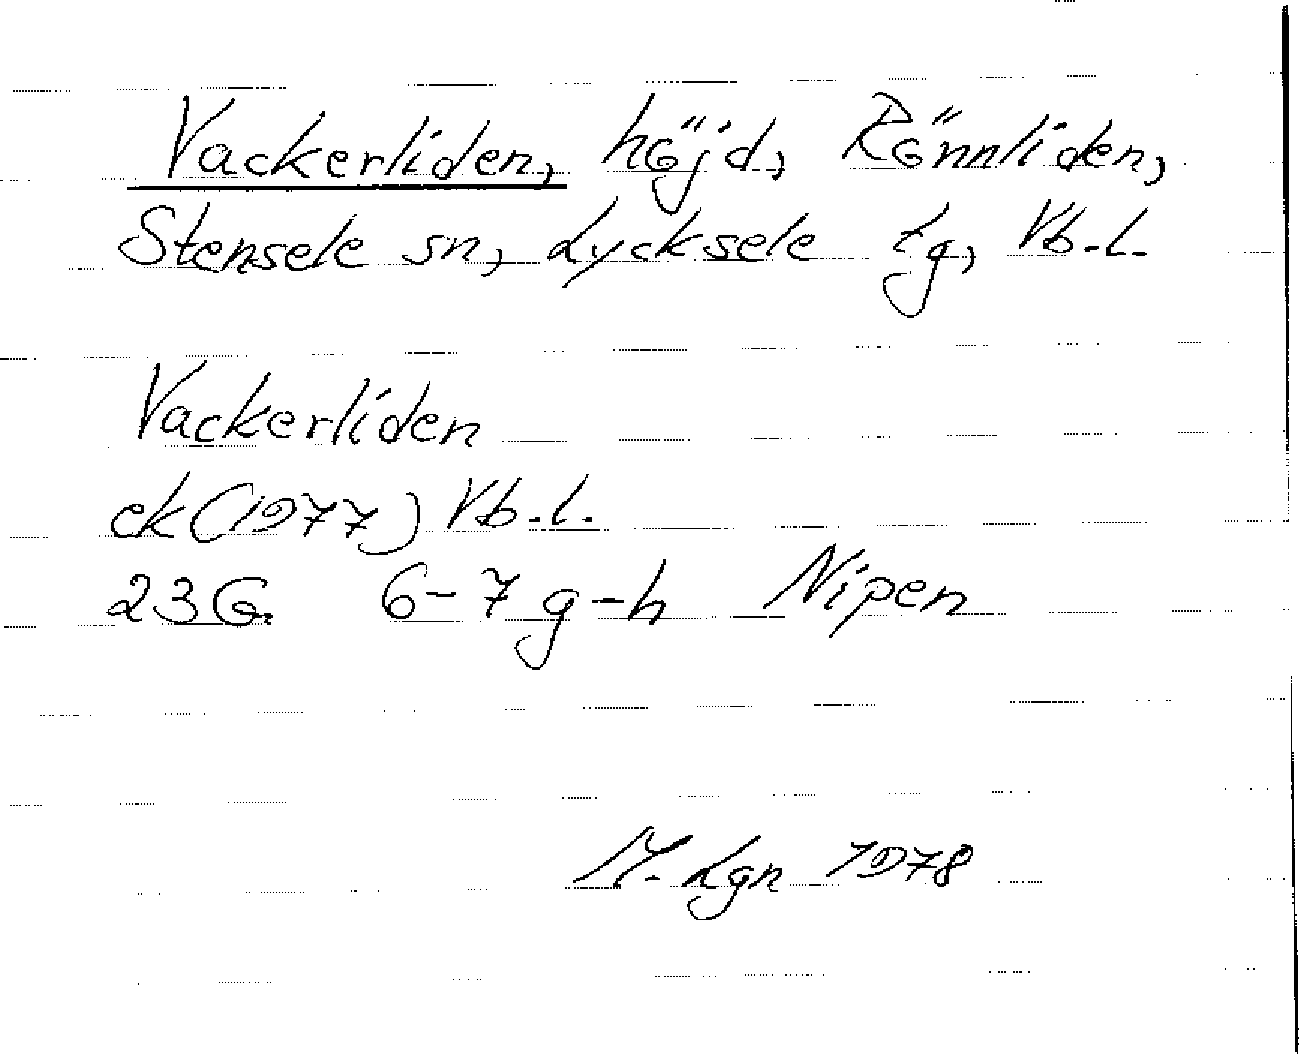 Vackerliden, höjd, Rönnliden,
Stensele sn, Lycksele tg, Vb.l.
Vackerliden
ek (1977) Vb.l.
23G. 6-7 g-h Nipen
M. Lgn 1978